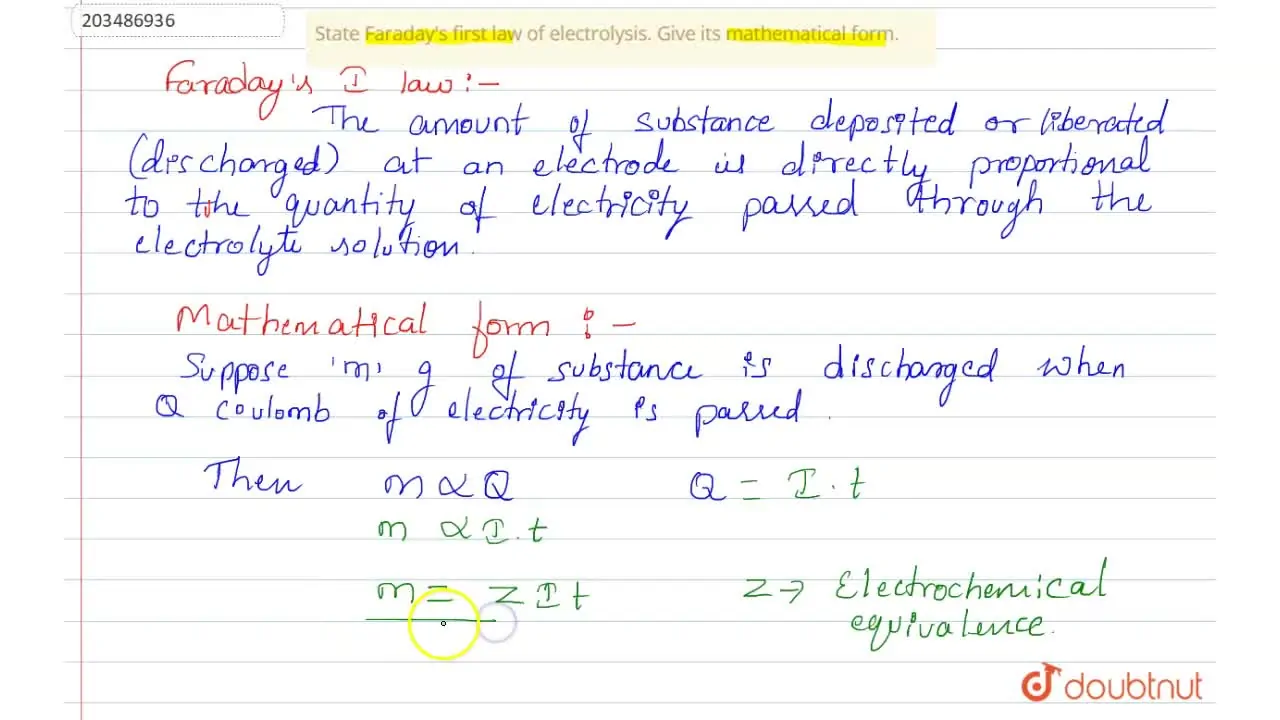 203486936
State Faraday's first law of electrolysis. Give its mathematical form.
Faraday's I law :-
The amount of substance deposited or liberated
(discharged) at an electrode is directly proportional
to the quantity of electricity passed through the
electrolyte solution.
Mathematical form :-
Suppose 'm' g of substance is discharged when
Q coulomb of electricity is passed.
Then m ∝ Q Q = I.t
m ∝ I.t
m = Z I t Z → Electrochemical
equivalence.
doubtnut